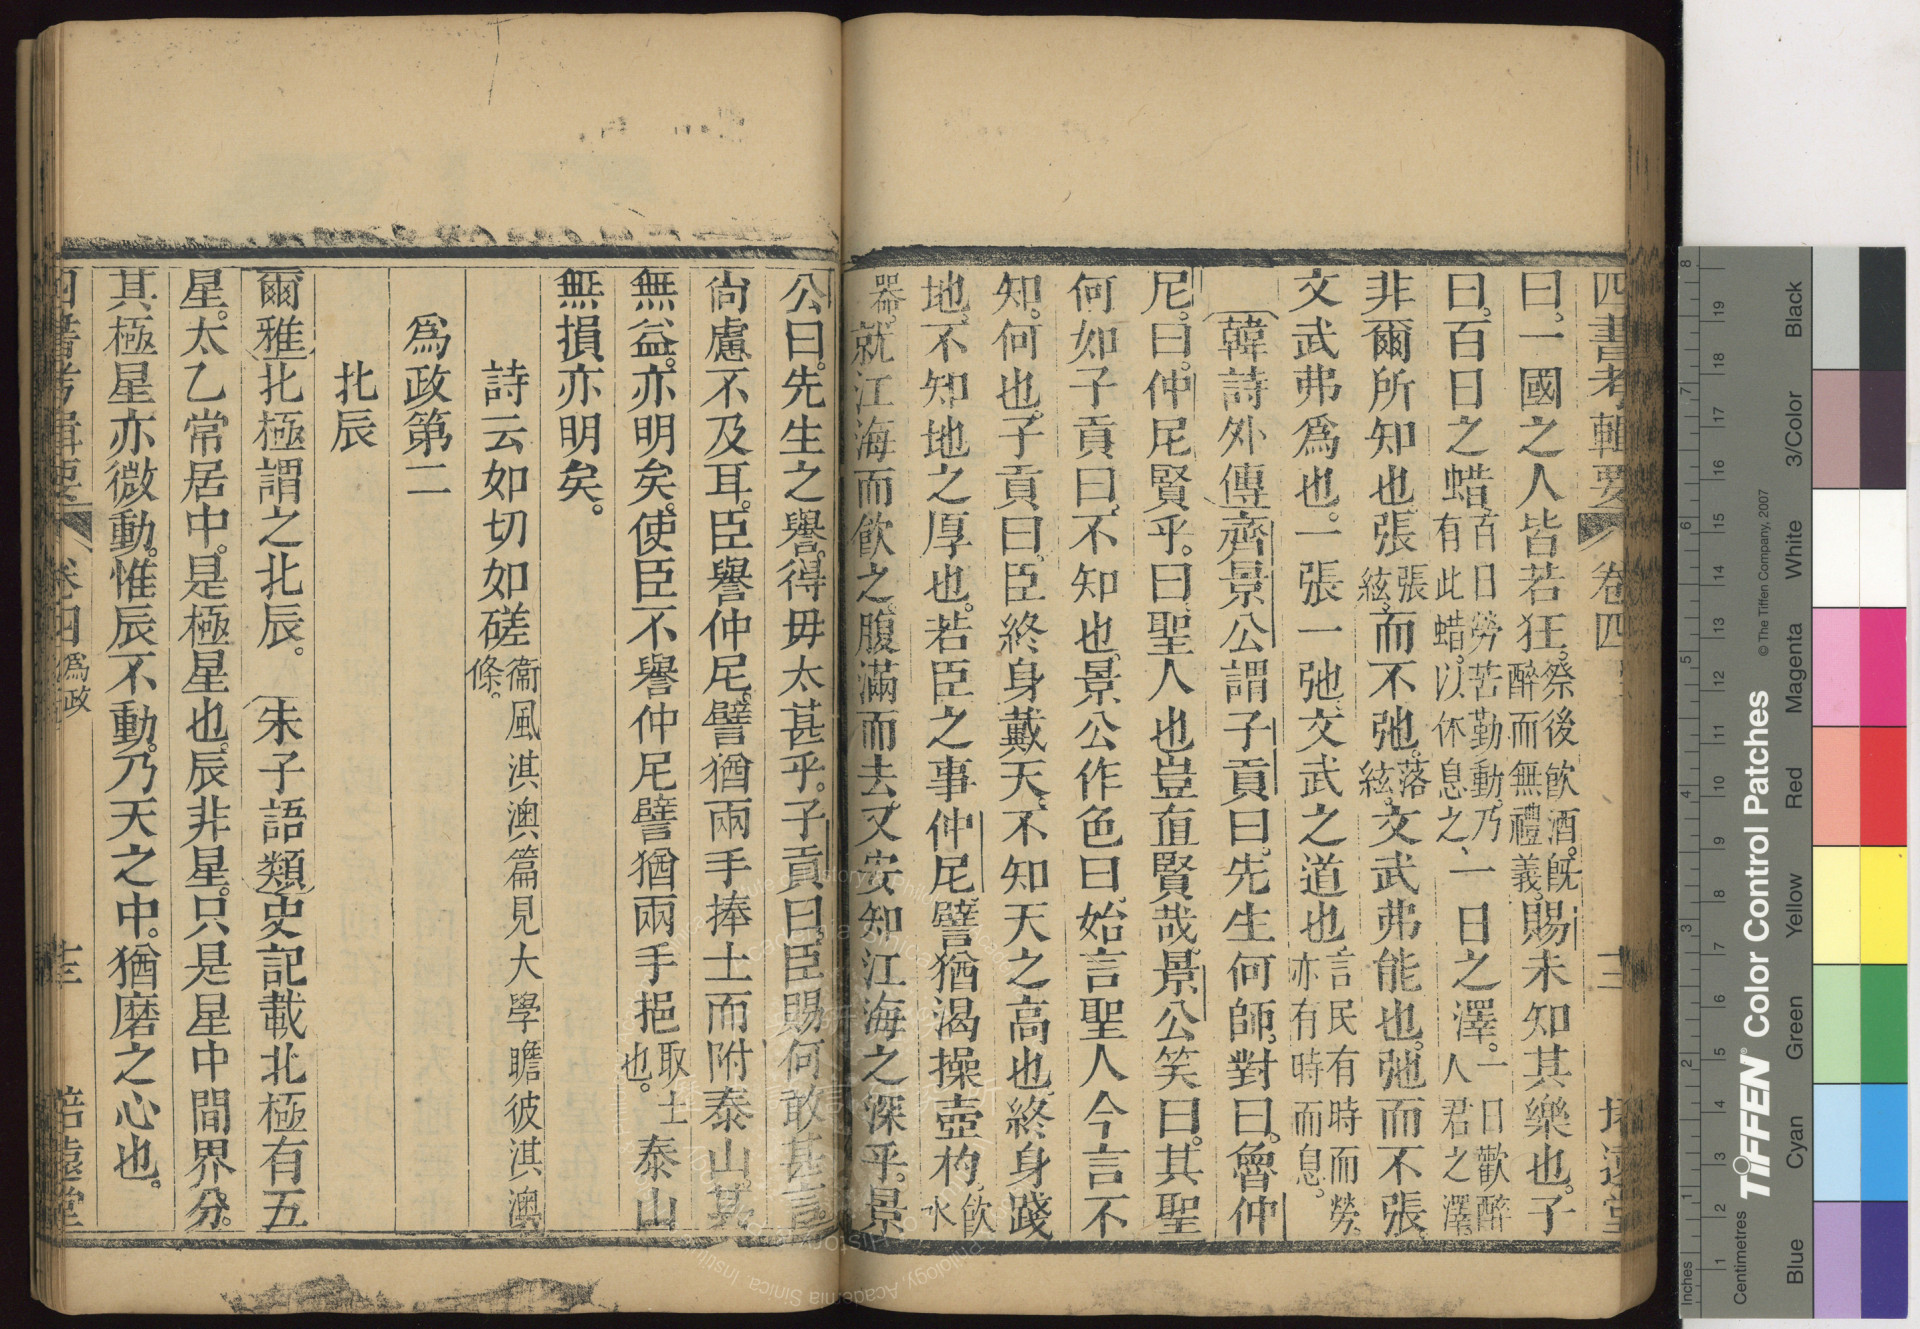 四書考輯要 卷四 三 培遠堂
曰。一國之人皆若狂。祭後飲酒。既醉而無禮義。賜未知其樂也。子
曰。百日之蜡。百日勞苦勤動。乃有此蜡。以休息之、一日之澤。一日歡醉人君之澤。
非爾所知也。張張絃。而不弛。落絃。文武弗能也。弛而不張。
文武弗爲也。一張一弛。文武之道也言民有時而勞。亦有時而息。
韓詩外傳齊景公謂子貢曰。先生何師。對曰。魯仲
尼。曰。仲尼賢乎。曰。聖人也豈直賢哉。景公笑曰。其聖
何如子貢曰。不知也。景公作色曰。始言聖人今言不
知。何也。子貢曰。臣終身戴天。不知天之高也。終身踐
地。不知地之厚也。若臣之事仲尼。譬猶渴操壺杓。飲水
器。就江海而飲之。腹滿而去。又安知江海之深乎。景
公曰。先生之譽。得毋太甚乎。子貢曰。臣賜何敢甚言。
尙慮不及耳。臣譽仲尼。譬猶兩手捧土而附泰山。其
無益。亦明矣。使臣不譽仲尼譬猶兩手挹取土也。泰山
無損亦明矣。
詩云如切如磋衞風淇澳篇見大學瞻彼淇澳條。
爲政第二
北辰
爾雅北極謂之北辰。 朱子語類史記載北極有五
星。太乙常居中。是極星也。辰非星。只是星中間界分。
其極星亦微動。惟辰不動。乃天之中。猶磨之心也。
四書考輯要 卷四 爲政 三 培遠堂
Inches
Centimetres
1 2 3 4 5 6 7 8
1 2 3 4 5 6 7 8 9 10 11 12 13 14 15 16 17 18 19
TIFFEN® Color Control Patches
© The Tiffen Company, 2007
Blue
Cyan
Green
Yellow
Red
Magenta
White
3/Color
Black